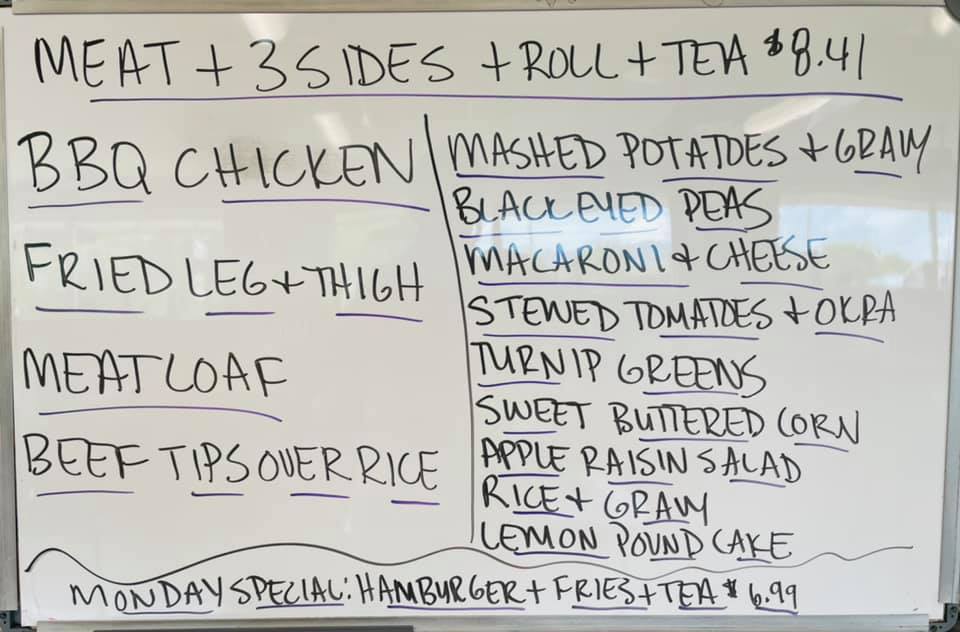 MEAT + 3 SIDES + ROLL + TEA $8.41
BBQ CHICKEN
FRIED LEG + THIGH
MEATLOAF
BEEF TIPS OVER RICE
MASHED POTATOES + GRAVY
BLACK EYED PEAS
MACARONI & CHEESE
STEWED TOMATOES + OKRA
TURNIP GREENS
SWEET BUTTERED CORN
APPLE RAISIN SALAD
RICE + GRAVY
LEMON POUND CAKE
MONDAY SPECIAL: HAMBURGER + FRIES + TEA $6.99